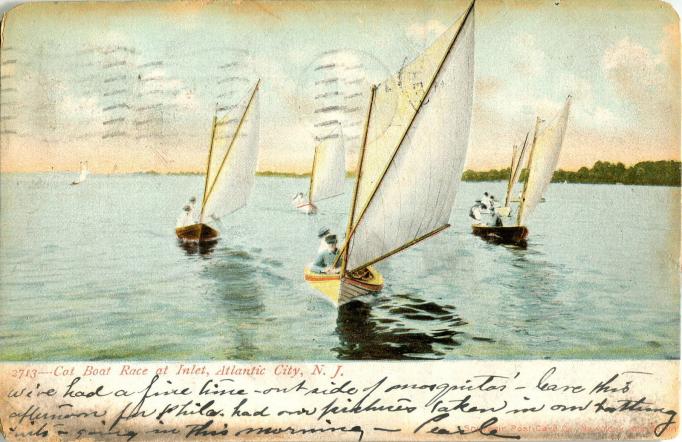 2713—Cat Boat Race at Inlet, Atlantic City, N. J.
we've had a fine time - out side of mosquitos' - leave this
afternoon for Phila. had our pictures taken in our bathing
suits - going in this morning -